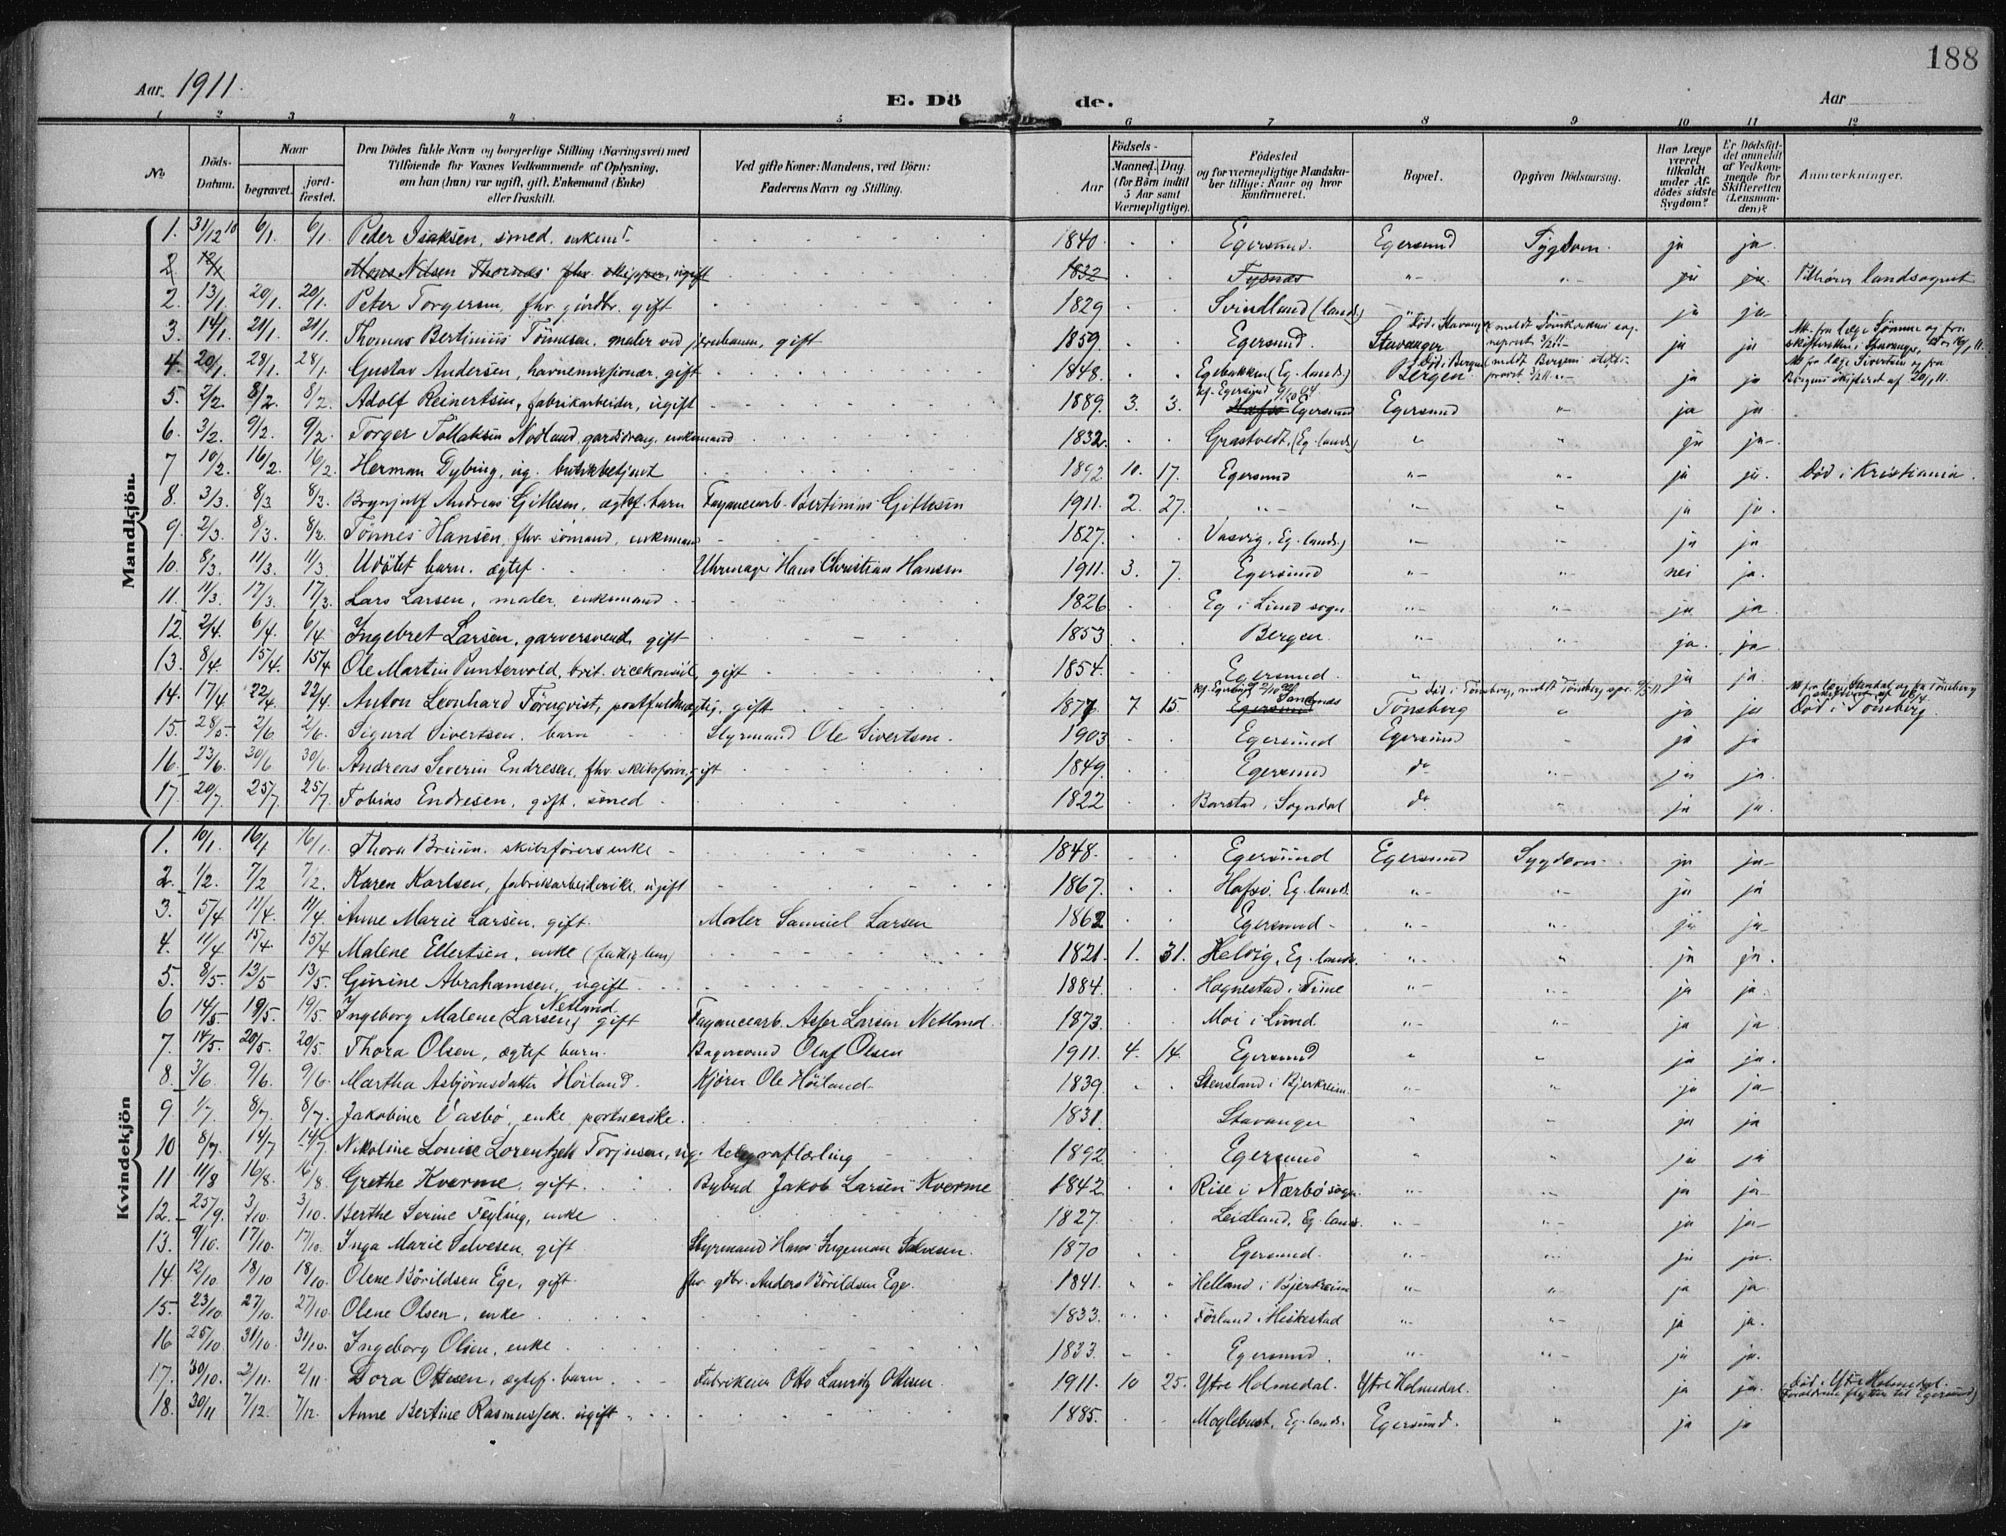 188
Aar 1911.
E. Dö de.
Aar
1 2 3 4 5 6 7 8 9 10 11 12
No. Döds-Datum. Naar begravet. jordfæstet. Den Dödes fulde Navn og borgerlige Stilling (Næringsvei) med Tilføiende for Voxnes Vedkommende af Oplysning, om han (hun) var ugift, gift, Enkemand (Enke) eller fraskilt. Ved gifte Koner: Mandens, ved Börn: Faderens Navn og Stilling. Födsels- Aar Maaned. Dag. (for Börn indtil 5 Aar samt Værnepligtige). Födested og for værnepligtige Mandskaber tillige: Naar og hvor konfirmeret. Bopæl. Opgiven Dödsaarsag. Har Læge været tilkaldt under Afdödes sidste Sygdom? Er Dödsfaldet anmeldt af Vedkommende for Skifteretten (Lensmanden)? Anmerkninger.
Mandkjön.
1. 31/12 10 6/1. 6/1. Peder Isaksen, smed, enkem. 1840. Egersund. Egersund Sygdom. ja ja.
2 12/1 Mons Nilsen Thornæs fhv. skipper, ugift 1832 Tysnæs "- "- ja ja. Tilhører landsognet
2. 13/1. 20/1. 20/1. Peter Torgersen, fhv. gårdbr. gift 1829 Svindland (lands) " ja ja
3. 14/1. 21/1. 21/1. Thomas Bertinius Tönnesen, maler ved jernbanen, gift 1859. Egersund. Stavanger ja ja
4. 20/1. 28/1. 28/1. Gustav Andersen, havnemissionær, gift 1848. Egebakken (Eg. lands) Bergen ja ja
5. 2/2. 8/2. 8/2. Adolf Reinertsen, fabrikarbeider, ugift 1889. 3. 3. Hafsø Egersund Egersund "- ja ja
6. 3/2. 9/2. 9/2. Torger Tollaksen Nodland, gardsdreng, enkemand 1832. Grastvedt, (Eg. lands) " " ja ja-
7 10/2. 16/2. 16/2. Herman Dybing, ug. butikbetjent 1892 10. 17. Egersund "- "- ja ja. Död i Kristiania.
8. 3/3. 8/3 8/3. Brynjulf Andreas Gitlesen, ægtef. barn Fayancearb. Bertinius Gitlesen 1911. 2. 27. "- "- "- ja ja.
9. 2/3. 8/3. 8/3. Tönnes Hansen, fhv. sömand, enkemand 1827. Vasvig, Eg. lands.) "- "- ja ja
10. 8/3. 11/3. 11/3 Udöbt barn. ægtef. Uhrmager Hans Christian Hansen 1911. 3. 7. Egersund "- "- nei ja.
11. 11/3. 17/3. 17/3. Lars Larsen, maler, enkemand 1826 Eg i Lund sogn "- "- ja ja.
12. 2/4. 6/4. 6/4 Ingebret Larsen, garversvend, gift 1853 Bergen. "- "- ja. ja.
13. 8/4. 15/4. 15/4 Ole Martin Puntervold, brit. vicekonsul, gift 1854. Egersund. " ja ja.
14. 17/4 22/4. 22/4. Anton Leonhard Törnqvist, postfuldmægtig, gift 1877 7 15. Egersund Sandnæs Tönsberg " ja ja Död i Tönsberg.
15. 28/5. 2/6 2/6. Sigurd Sivertsen. barn Styrmand Ole Sivertsen. 1903 Egersund Egersund "- ja ja
16. 23/6. 30/6 30/6. Andreas Severin Endresen, fhv. skibsfører, gift 1849. Egersund do "- ja ja.
17. 20/7. 25/7 25/7. Tobias Endresen, gift, smed 1822 Barstad i Sogndal do " ja ja.
Kvindekjön
1. 10/1. 16/1 16/1. Thora Bruun. skibsførers enke 1848. Egersund Egersund Sygdom. ja ja-
2. 1/2. 7/2 7/2. Karen Karlsen, fabrikarbeiderske, ugift 1867. Hafsø. Eg. lands "- "- ja ja
3. 5/4 11/4. 11/4. Anne Marie Larsen, gift. Maler Samuel Larsen 1862 Egersund- "- "- ja ja-
4. 11/4 15/4. 15/4 Malene Ellertsen, enke (fattiglem) 1821. 1. 31. Helvig, Eg. lands. "- " ja ja.
5. 8/5. 13/5 13/5. Gurine Abrahamsen, ugift 1884. Hognestad i Time "- "- ja ja.
6 14/5. 19/5. 19/5. Ingeborg Malene (Larsen) Netland gift Fayancearb. Asser Larsen Netland. 1873. Moi i Lund. "- "- ja ja
7. 14/5. 20/5. 20/5. Thora Olsen, ægtef barn. Bagersvend Olaf Olsen 1911. 4. 14. Egersund " " ja ja.
8. 3/6 9/6. 9/6. Martha Asbjörnsdatter Höiland. Kjörer Ole Höiland 1839. Stensland i Bjerkreim "- "- ja ja-
9. 1/7. 8/7. 8/7. Jakobine Vasbö, enke, portnerske. 1831. Stavanger " " ja ja
10 8/7. 14/7 14/7. Nikoline Louise Lorentzen Torjusen, ug. telegraflærling 1892 Egersund " " ja ja
11 11/8 16/8. 16/8. Grethe Kverme, gift. Bybud Jakob Larsen Kverme 1842 Rise i Nærbö sogn "- "- ja ja-
12. 25/9. 3/10. 3/10. Berthe Serine Feyling, enke 1827. Leidland, Eg. lands. "- "- ja ja-
13. 9/10. 17/10. 17/10. Inga Marie Salvesen, gift Styrmand Hans Ingeman Salvesen. 1870 Egersund. "- "- ja ja.
14. 12/10 18/10 18/10. Olene Bövildsen Ege, gift. fhv. gbr. Anders Bövildsen Ege. 1841. Helland i Bjerkreim "- " ja ja.
15. 23/10. 27/10. 27/10 Olene Olsen, enke 1833. Förland i Heskestad "- "- ja ja.
16 25/10 31/10 31/10. Ingeborg Olsen, enke. 1833. Egersund. "- "- ja ja.
17. 30/10. 2/11. 2/11 Dora Ottesen, ægtef. barn. Fabrikeier Otto Lauritz Ottesen. 1911. 10 25. Ytre Holmedal. Ytre Holmedal. "- ja ja. Död i Ytre Holmedal. (Forældrene flyttet til Egersund)
18. 30/11 7/12. 7/12. Anne Bertine Rasmussen. ugift 1885. Moglebust, Eg. lands. Egersund. " ja ja